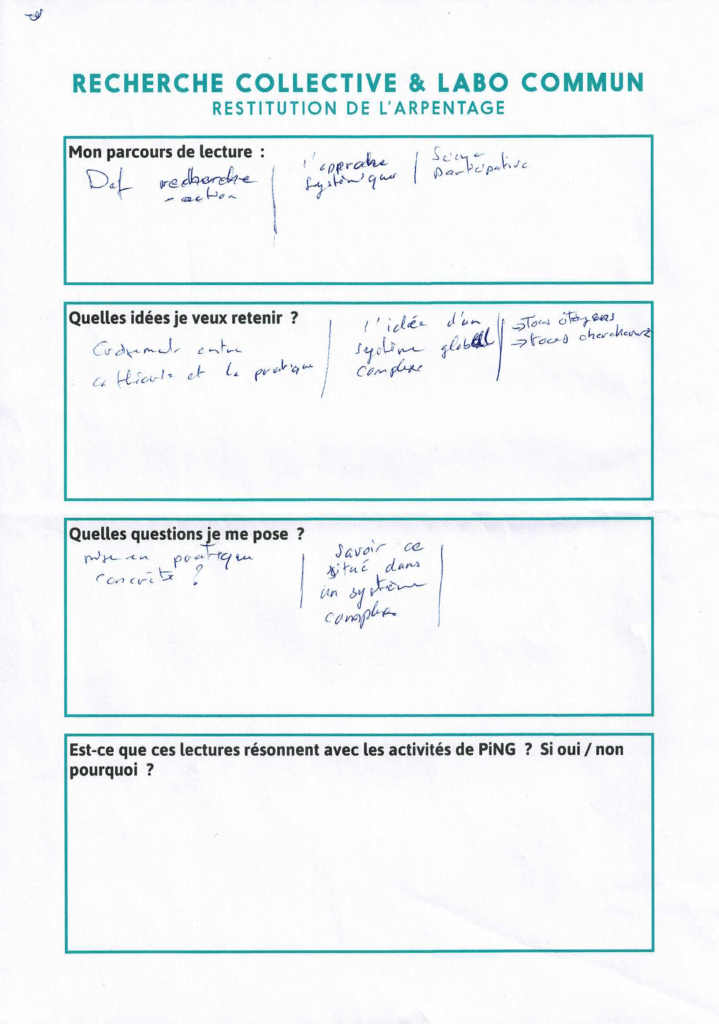 RECHERCHE COLLECTIVE & LABO COMMUN
RESTITUTION DE L'ARPENTAGE
Mon parcours de lecture :
Def recherche
- action
l'approche
systémique
Science
participative
Quelles idées je veux retenir ?
entre
et la pratique
l'idée d'un
système global
complexe
→Tous citoyens
→tous chercheurs
Quelles questions je me pose ?
mise en pratique
concrète ?
Savoir ce
situé dans
un système
complexe
Est-ce que ces lectures résonnent avec les activités de PiNG ? Si oui / non
pourquoi ?